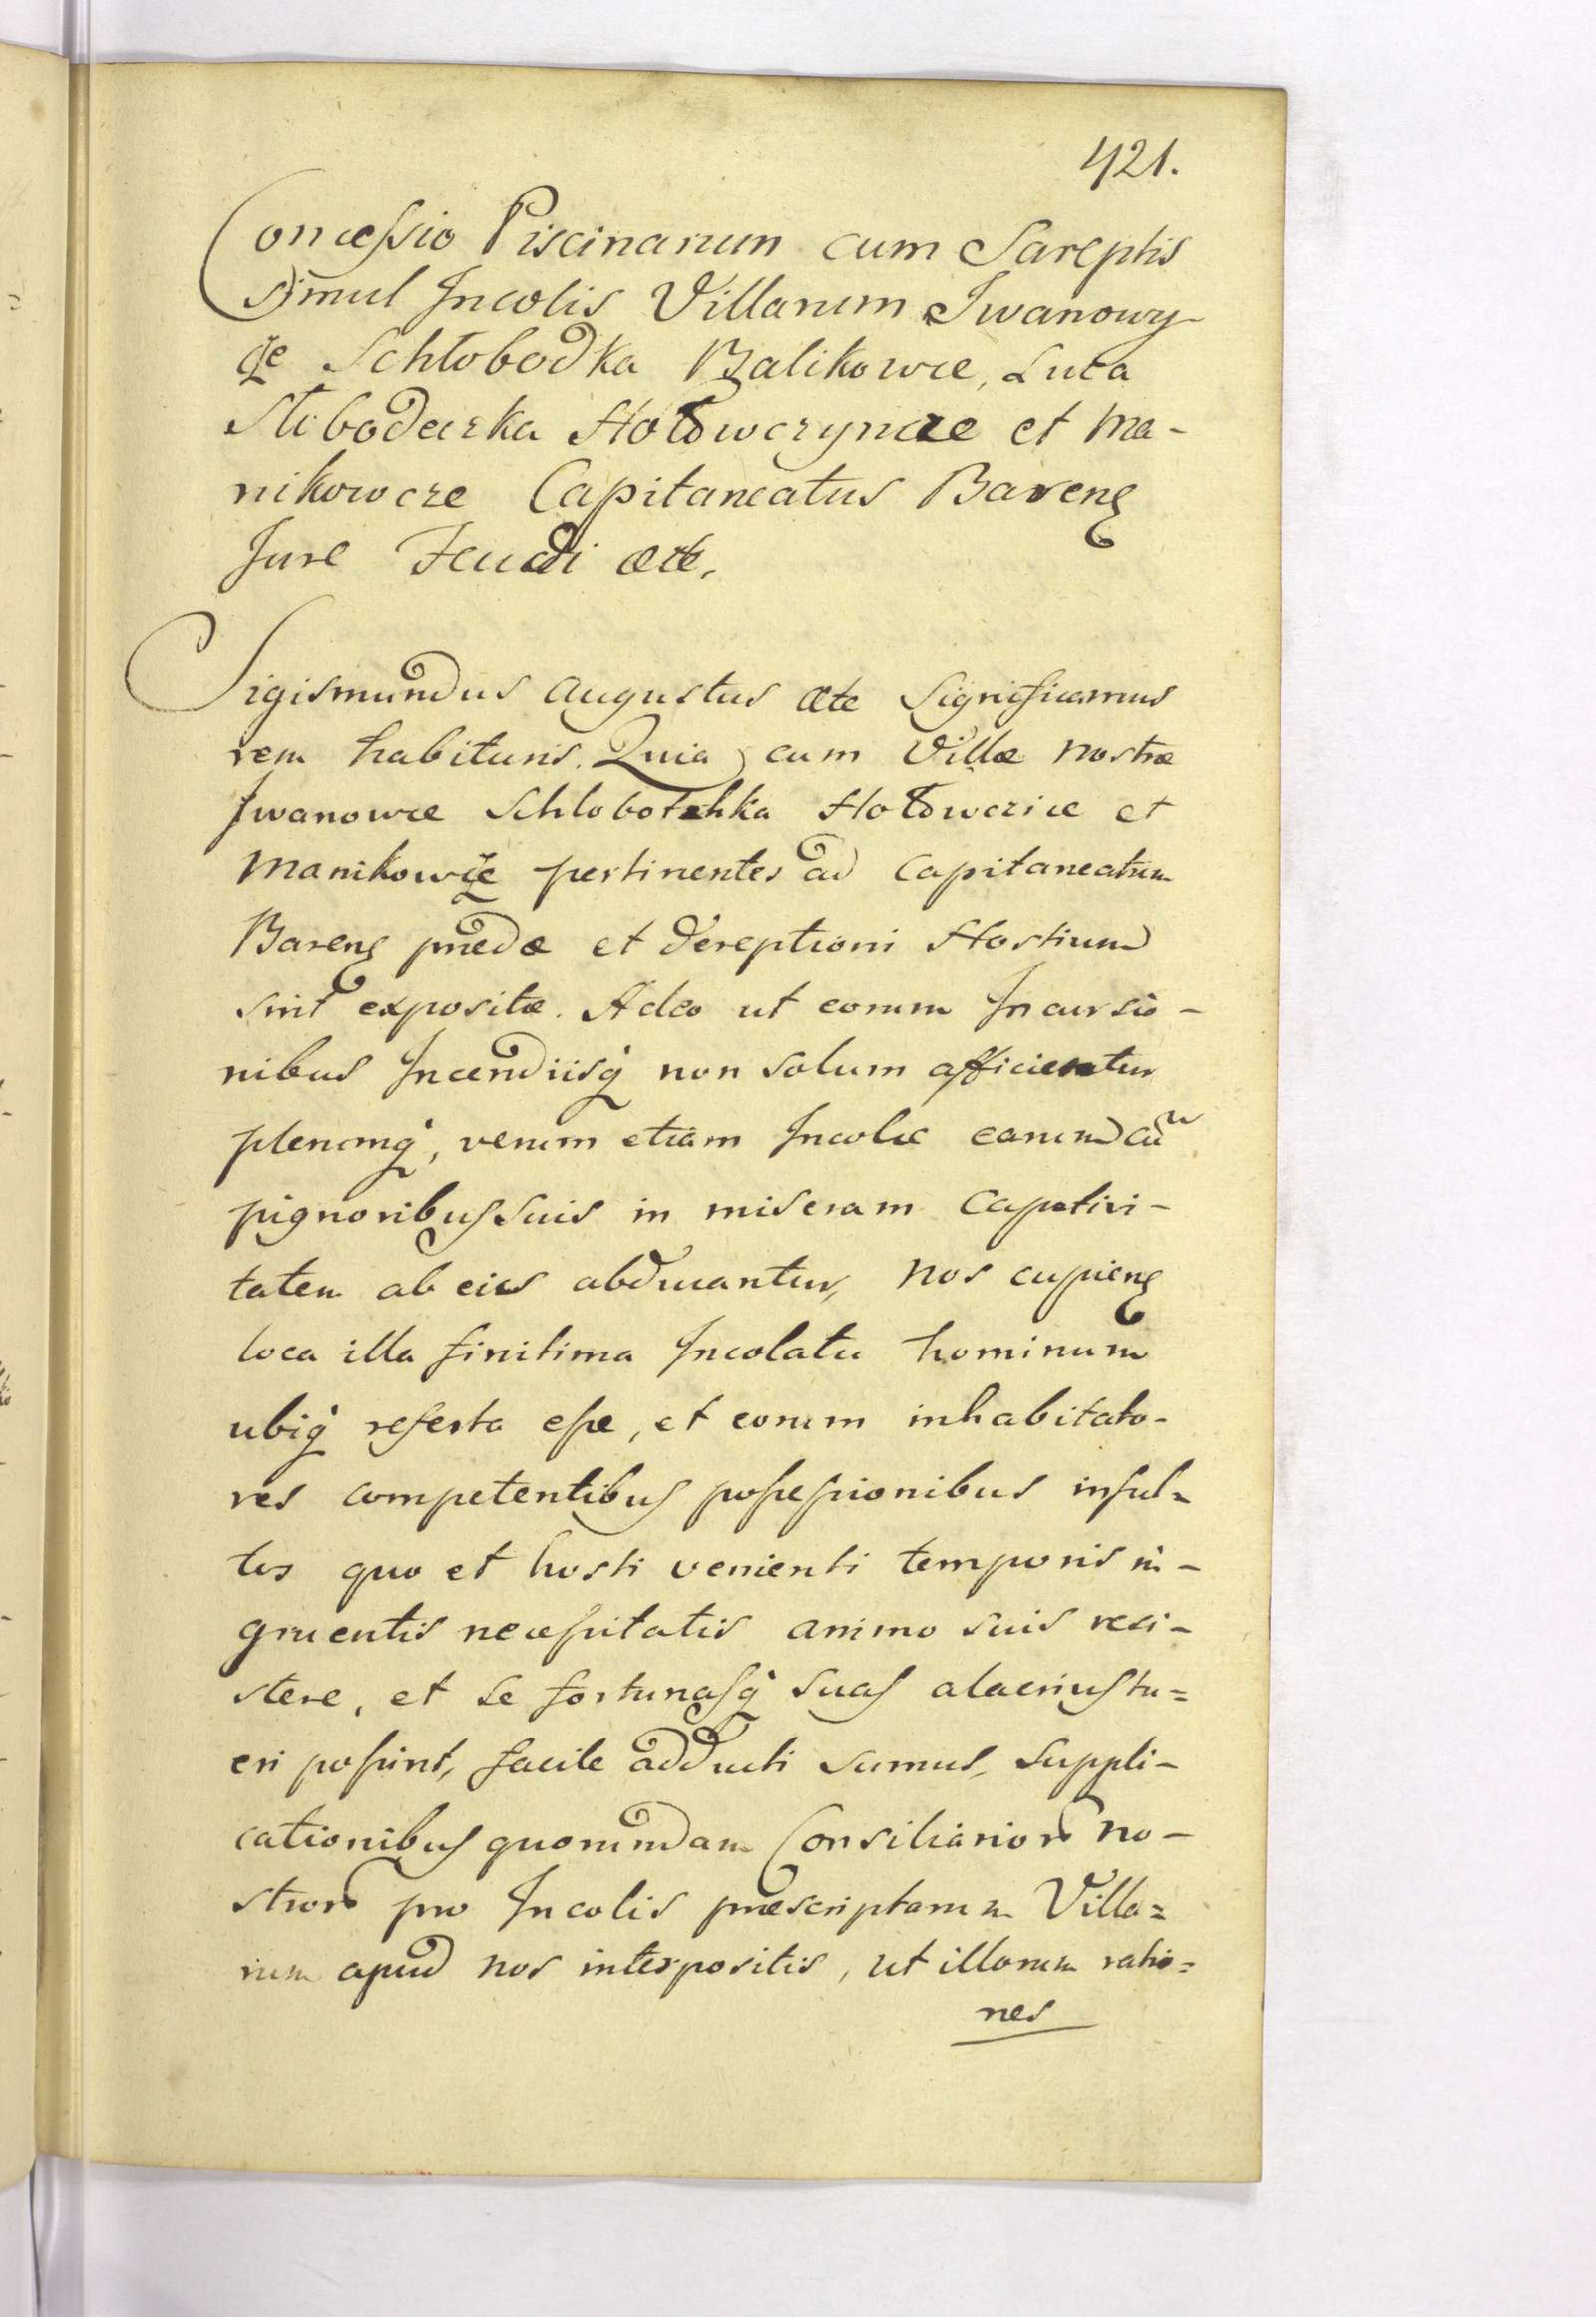 421.
Concessio Piscinarum cum Sareptis
simul Incolis Villarum Iwanowy-
cze Schłobodka Balikowce, Luta
Słobodecrka Hołowczyncze et Ma-
nikowcze Capitaneatus Barenȝ
Jure Feudi etc.
Sigismundus Augustus etc Significamus
rem habituris. Quia cum Villæ nostræ
Iwanowce Schlobotchka Hołowczice et
Manikowcze pertinentes ad Capitaneatum
Barenȝ prædæ et dereptioni Hostium
sint expositæ. Adeo ut eorum Incursio-
nibus Incendiisq̀ non solum afficientur
plerumq̀, verum etiam Incolæ earum cũ
pignoribus suis in miseram Captivi-
tatem ab eis abducantur, Nos cupienȝ
loca illa finitima Incolatu hominum
ubiq̀ referta esse, et eorum inhabitato-
res competentibus possessionibus insul-
tos quo et hosti venienti temporis in-
gruentis necessitatis animo suis resi-
stere, et se fortunasq̀ suas alacrius tu=
eri possint, facile adducti sumus, suppli-
cationibus quorundam Consiliarior̃ no-
stror̃ pro Incolis præscriptarum Villa=
rum apud nos interpositis, ut illorum ratio=
nes